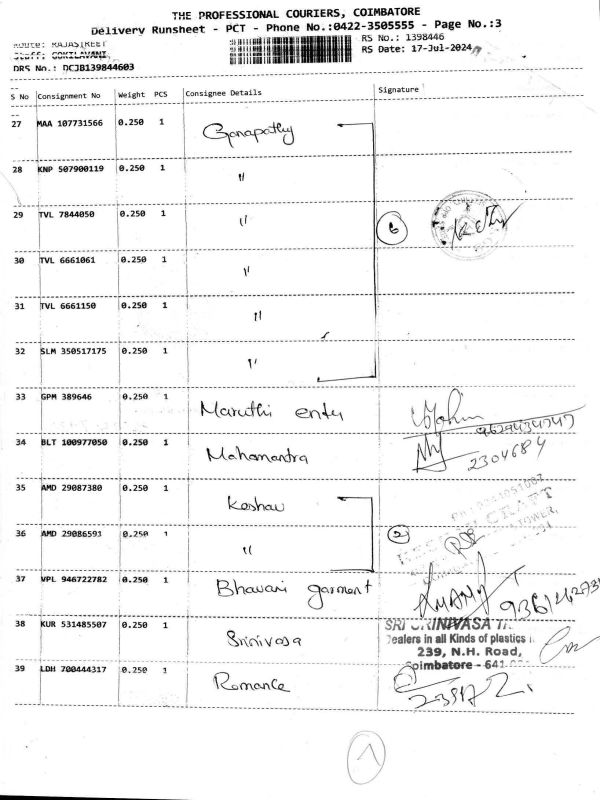 THE PROFESSIONAL COURIERS, COIMBATORE
Delivery Runsheet - PCT - Phone No.:0422-3505555 - Page No.:3
Route: RAJASTREET
RS No.: 1398446
Staff: GOKILAVANI
RS Date: 17-Jul-2024
DRS No.: DCJB139844603
S No Consignment No Weight PCS Consignee Details Signature
27 MAA 107731566 0.250 1 Ganapathy
28 KNP 507900119 0.250 1 "
29 TVL 7844050 0.250 1 " 6
30 TVL 6661061 0.250 1 "
31 TVL 6661150 0.250 1 "
32 SLM 350517175 0.250 1 "
33 GPM 389646 0.250 1 Maruthi
34 BLT 100977050 0.250 1 Mahamantra 2304684
35 AMD 29087380 0.250 1 Keshav
36 AMD 29086593 0.250 1 " 2
37 VPL 946722782 0.250 1 Bhavani garment
38 KUR 531485507 0.250 1 Srinivasa
SRI SRINIVASA
Dealers in all Kinds of plastics
239, N.H. Road,
Coimbatore - 641
39 LDH 700444317 0.250 1 Romance